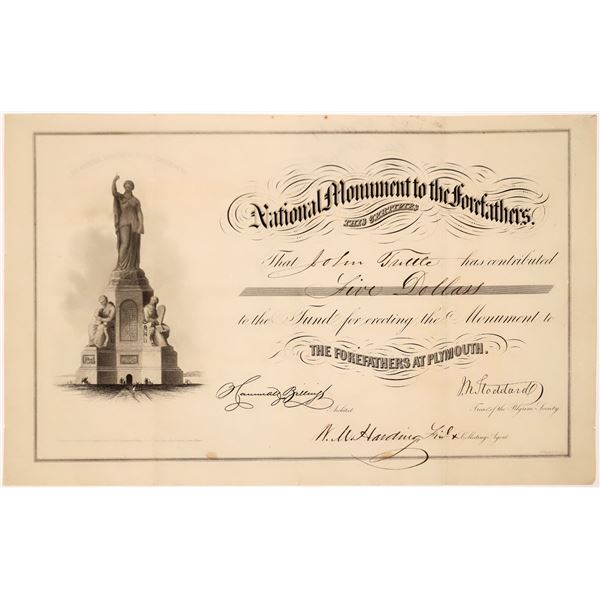 National Monument to the Forefathers.
THIS CERTIFIES
That John Tuttle has contributed
Five Dollars
to the Fund for erecting the Monument to
THE FOREFATHERS AT PLYMOUTH.
Hammatt Billings
Architect
J. N. Stoddard
Treas.r of the Pilgrim Society
W. M. Harding Fin.l & Collecting Agent